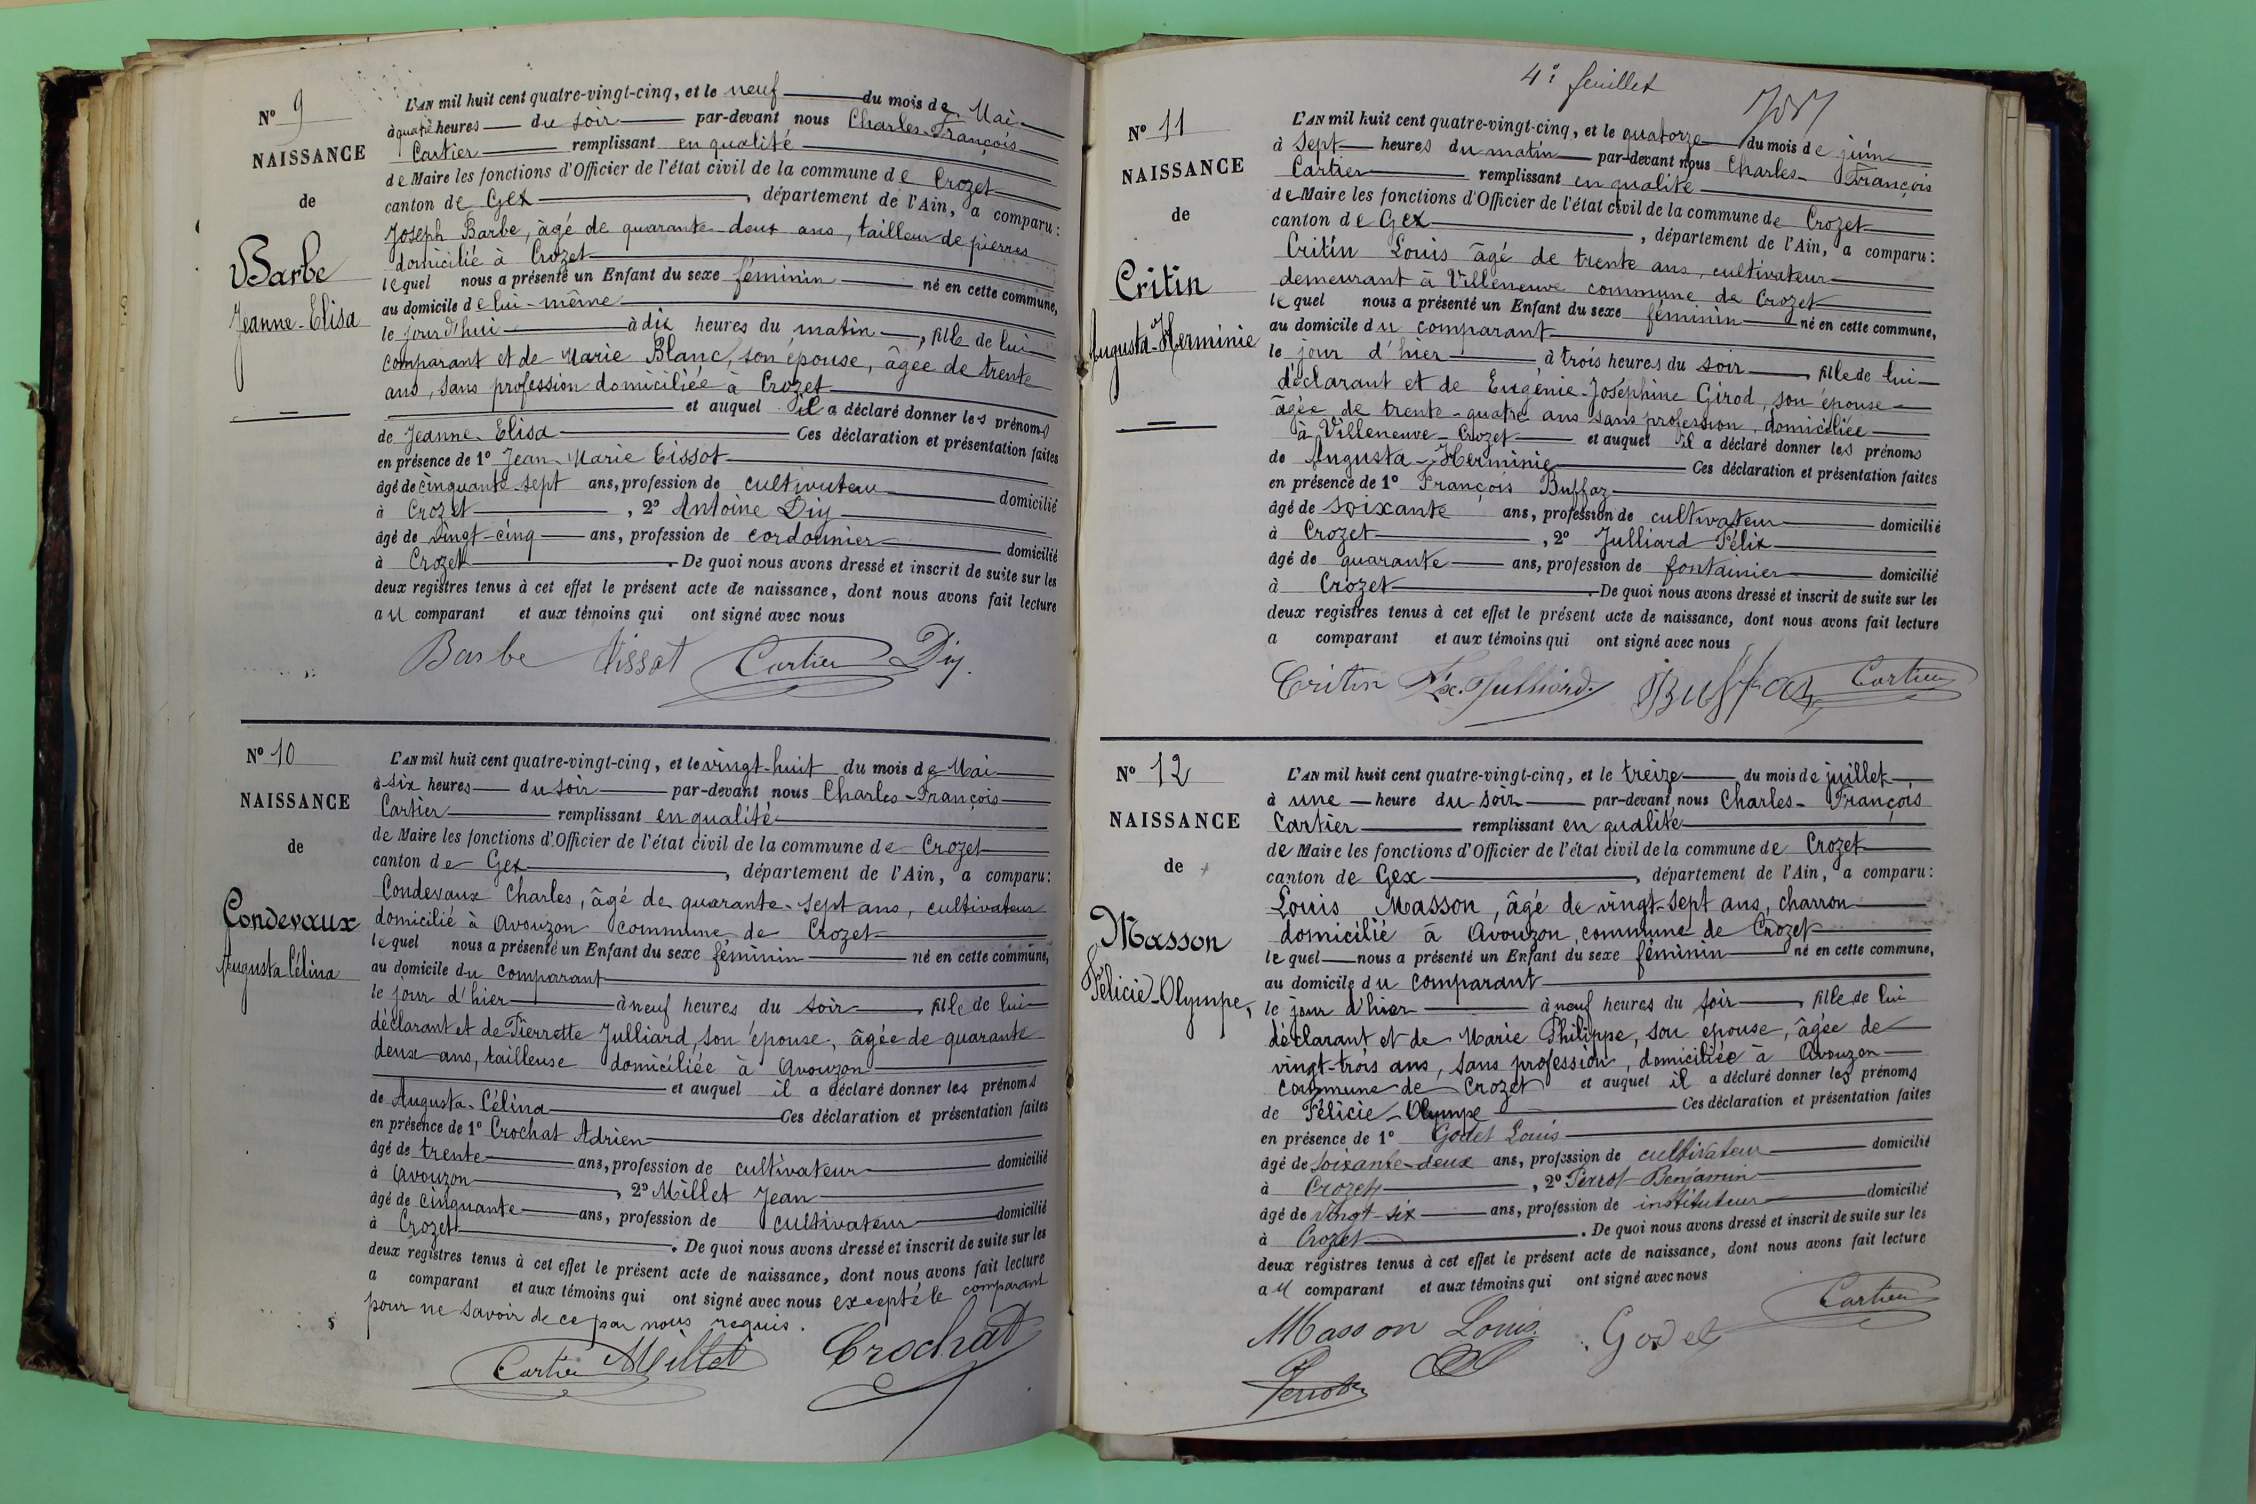 Nº 9
NAISSANCE
de
Barbe
Jeanne-Elisa
L'AN mil huit cent quatre-vingt-cinq, et le neuf du mois de Mai
à quatre heures du soir par-devant nous Charles-François
Cartier remplissant en qualité
de Maire les fonctions d'Officier de l'état civil de la commune de Crozet
canton de Gex, département de l'Ain, a comparu:
Joseph Barbe, âgé de quarante-deux ans, tailleur de pierres
domicilié à Crozet
lequel nous a présenté un Enfant du sexe féminin né en cette commune,
au domicile de lui-même
le jour d'hui à dix heures du matin, fille de lui
comparant et de Marie Blanc, son épouse, âgée de trente
ans, sans profession domiciliée à Crozet
et auquel il a déclaré donner les prénoms
de Jeanne-Elisa Ces déclaration et présentation faites
en présence de 1º Jean-Marie Tissot
âgé de cinquante-sept ans, profession de cultivateur domicilié
à Crozet, 2º Antoine Diy
âgé de vingt-cinq ans, profession de cordonnier domicilié
à Crozet. De quoi nous avons dressé et inscrit de suite sur les
deux registres tenus à cet effet le présent acte de naissance, dont nous avons fait lecture
au comparant et aux témoins qui ont signé avec nous
Barbe Tissot Cartier Diy.
Nº 10
NAISSANCE
de
Condevaux
Augusta Célina
L'AN mil huit cent quatre-vingt-cinq, et le vingt-huit du mois de Mai
à six heures du soir par-devant nous Charles-François
Cartier remplissant en qualité
de Maire les fonctions d'Officier de l'état civil de la commune de Crozet
canton de Gex, département de l'Ain, a comparu:
Condevaux Charles, âgé de quarante-sept ans, cultivateur
domicilié à Avouzon commune de Crozet
lequel nous a présenté un Enfant du sexe féminin né en cette commune,
au domicile du comparant
le jour d'hier à neuf heures du soir, fille de lui
déclarant et de Pierrette Julliard, son épouse, âgée de quarante-
deux ans, tailleuse domiciliée à Avouzon
et auquel il a déclaré donner les prénoms
de Augusta-Célina Ces déclaration et présentation faites
en présence de 1º Crochat Adrien
âgé de trente ans, profession de cultivateur domicilié
à Avouzon, 2º Millet Jean
âgé de cinquante ans, profession de cultivateur domicilié
à Crozet. De quoi nous avons dressé et inscrit de suite sur les
deux registres tenus à cet effet le présent acte de naissance, dont nous avons fait lecture
a comparant et aux témoins qui ont signé avec nous excepté le comparant
pour ne savoir de ce par nous requis.
Cartier Millet Crochat
4e feuillet
Nº 11
NAISSANCE
de
Critin
Augusta-Herminie
L'AN mil huit cent quatre-vingt-cinq, et le quatorze du mois de juin
à sept heures du matin par-devant nous Charles-François
Cartier remplissant en qualité
de Maire les fonctions d'Officier de l'état civil de la commune de Crozet
canton de Gex, département de l'Ain, a comparu:
Critin Louis âgé de trente ans, cultivateur
demeurant à Villeneuve commune de Crozet
lequel nous a présenté un Enfant du sexe féminin né en cette commune,
au domicile du comparant
le jour d'hier à trois heures du soir, fille de lui
déclarant et de Eugénie-Joséphine Girod, son épouse
âgée de trente-quatre ans sans profession, domiciliée
à Villeneuve-Crozet et auquel il a déclaré donner les prénoms
de Augusta-Herminie Ces déclaration et présentation faites
en présence de 1º François Buffaz
âgé de soixante ans, profession de cultivateur domicilié
à Crozet, 2º Julliard Félix
âgé de quarante ans, profession de fontainier domicilié
à Crozet. De quoi nous avons dressé et inscrit de suite sur les
deux registres tenus à cet effet le présent acte de naissance, dont nous avons fait lecture
a comparant et aux témoins qui ont signé avec nous
Critin Fx. Julliard. Buffaz Cartier
Nº 12
NAISSANCE
de
Masson
Félicie-Olympe,
L'AN mil huit cent quatre-vingt-cinq, et le treize du mois de juillet
à une heure du soir par-devant nous Charles-François
Cartier remplissant en qualité
de Maire les fonctions d'Officier de l'état civil de la commune de Crozet
canton de Gex, département de l'Ain, a comparu:
Louis Masson, âgé de vingt-sept ans, charron
domicilié à Avouzon, commune de Crozet
lequel nous a présenté un Enfant du sexe féminin né en cette commune,
au domicile du comparant
le jour d'hier à neuf heures du soir, fille de lui
déclarant et de Marie Philippe, son épouse, âgée de
vingt-trois ans, sans profession, domiciliée à Avouzon
commune de Crozet et auquel il a déclaré donner les prénoms
de Félicie-Olympe Ces déclaration et présentation faites
en présence de 1º Godet Louis
âgé de soixante-deux ans, profession de cultivateur domicilié
à Crozet, 2º Perrot Benjamin
âgé de vingt-six ans, profession de instituteur domicilié
à Crozet. De quoi nous avons dressé et inscrit de suite sur les
deux registres tenus à cet effet le présent acte de naissance, dont nous avons fait lecture
au comparant et aux témoins qui ont signé avec nous
Cartier
Masson Louis. Godet
Perrot